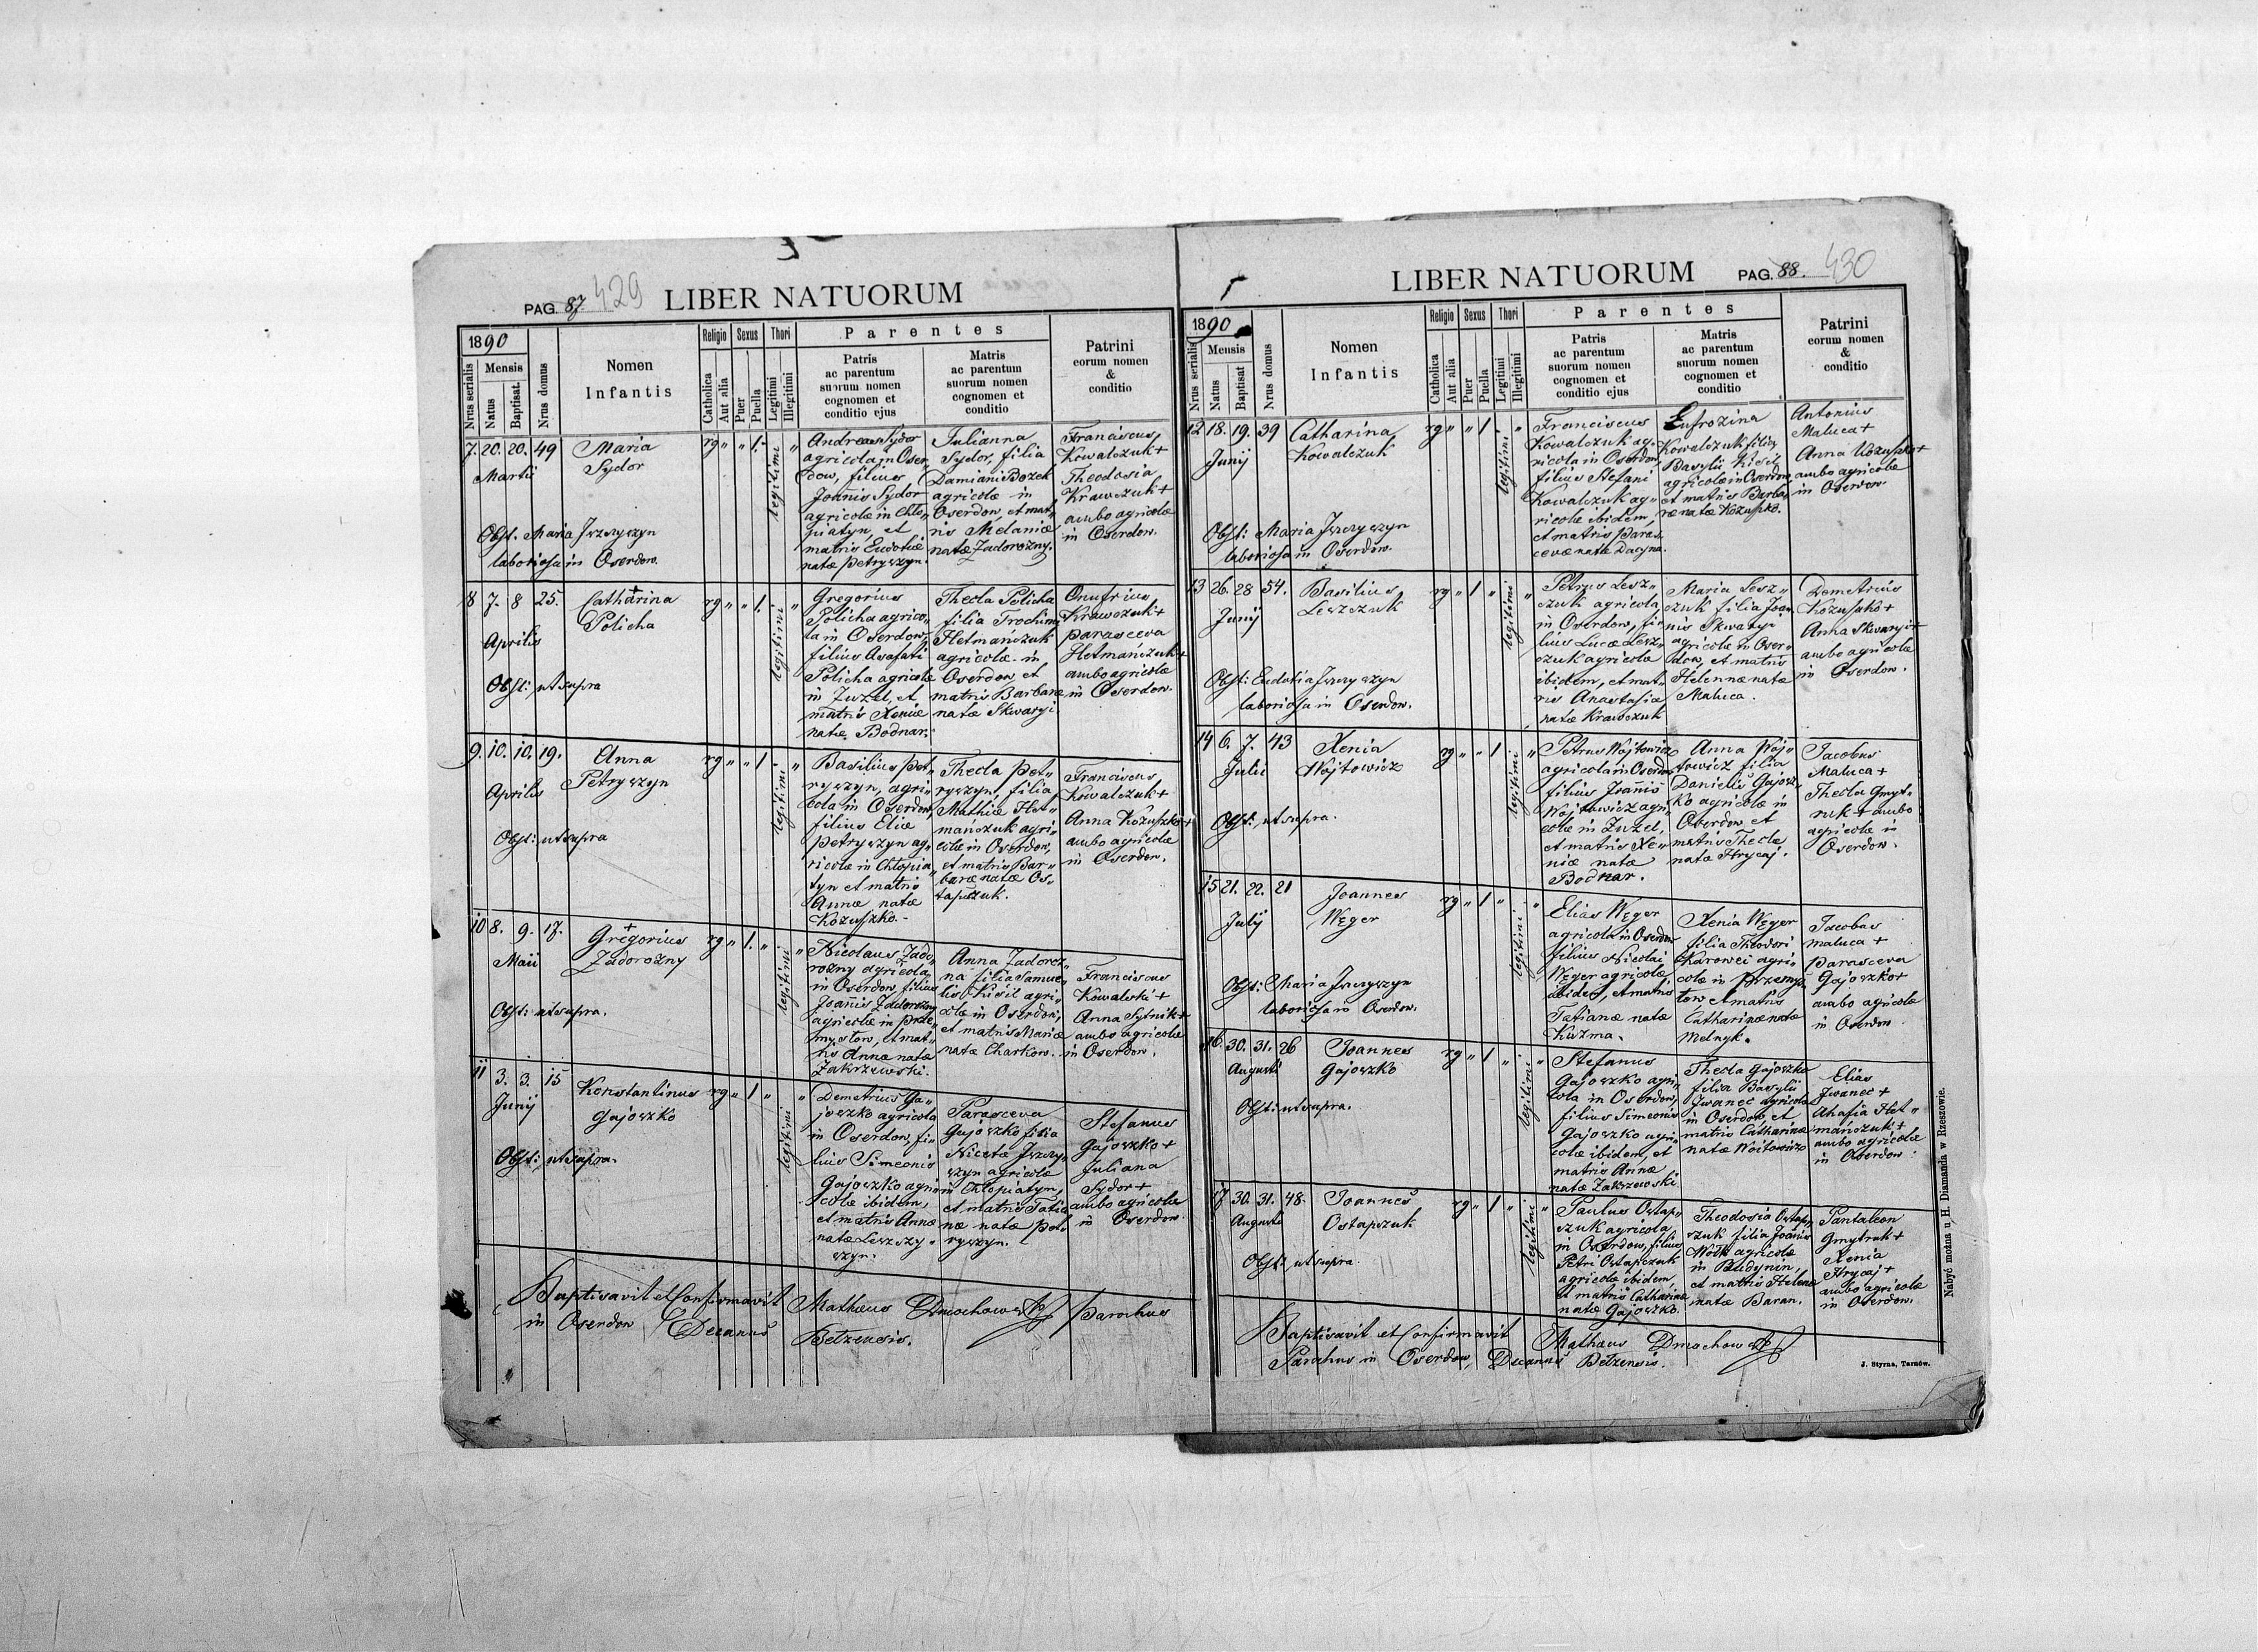 PAG. 87. 429 LIBER NATUORUM
1890
Nrus serialis
Mensis
Natus
Baptisat.
Nrus domus
Nomen
Infantis
Religio
Catholica
Aut alia
Sexus
Puer
Puella
Thori
Legitimi
Illegitimi
Parentes
Patris
ac parentum
suorum nomen
cognomen et
conditio ejus
Matris
ac parentum
suorum nomen
cognomen et
conditio
Patrini
eorum nomen
&
conditio
7. 20. 20. 49
Martii
Maria
Sydor
rg " " 1. "
legitimi
Andreas Sydor
agricola in Oser
dow, filius
Joannis Sydor
agricolæ in Chło„
piatyn, et
matris Eudociæ
natæ Petryszyn.
Julianna
Sydor, filia
Damiani Bozek
agricolæ in
Oserdow, et mat„
ris Melaniæ
natæ Zadorozny.
Franciscus
Kowalczuk +
Theodosia
Krawczuk +
ambo agricolæ
in Oserdow.
Obst. Maria
laboriosa in Oserdow.
8 7. 8 25.
Aprilis
+
Catharina
Policha
rg " " 1. "
legitimi
Gregorius
Policha agrico„
la in Oserdow,
filius Asafati
Policha agricolæ
in Zuzel, et
matris Xeniæ
natæ Bodnar.
Thecla Policha
filia Trochimi
Hetmańczuk
agricolæ in
Oserdow et
matris Barbaræ
natæ Skwaryi.
Onufrius
Krawczuk +
Parasceva
Hetmańczuk +
ambo agricolæ
in Oserdow.
Obst: ut supra
9. 10. 10. 19.
Aprilis
Anna
Petryszyn
rg " " 1 "
legitimi
Basilius Pet„
ryszyn, agri„
cola in Oserdow,
filius Eliæ
Petryszyn ag„
ricolæ in Chłopia„
tyn et matris
Annæ natæ
Kozuszko.
Thecla Pet„
ryszyn, filia
Mathiæ Het„
mańczuk agri„
colæ in Oserdow,
et matris Bar„
baræ natæ Os„
tapczuk.
Franciscus
Kowalczuk +
Anna Kozuszko +
ambo agricolæ
in Oserdow.
Obst: ut supra
10 8. 9. 17.
Maii
+
Gregorius
Zadorozny
rg " 1. " "
legitimi
Nicolaus Zado„
rozny agricola
in Oserdow, filius
Joannis Zadorozny
agricolæ in Prze„
mysłow, et mat„
ris Annæ natæ
Zakrzewski.
Anna Zadorcz„
na filia Samue„
lis Kisil agri„
colæ in Oserdow,
et matris Mariæ
natæ Charkow.
Franciscus
Kowalski +
Anna Sytnik +
ambo agricolæ
in Oserdow.
Obst: ut supra.
11 3. 3. 15
Junij
Konstantinus
Gajoszko
rg " 1 " "
legitimi
Demetrius Ga„
joszko agricola
in Oserdow, fi„
lius Simeonis
Gajoszko agri„
colæ ibidem,
et matris Annæ
natæ Leszczy„
szyn.
Parasceva
Gajoszko filia
Nicetæ
szyn agricolæ
in Chłopiatyn,
et matris Tatia„
næ natæ Pet„
ryszyn.
Stefanus
Gajoszko +
Juliana
Sydor +
ambo agricolæ
in Oserdow.
Obst: ut supra.
Baptisavit et Confirmavit Mathæus Dmochowski Parochus
in Oserdow Decanus Bełzensis.
LIBER NATUORUM PAG. 88. 430
1890
Nrus serialis
Mensis
Natus
Baptisat
Nrus domus
Nomen
Infantis
Religio
Catholica
Aut alia
Sexus
Puer
Puella
Thori
Legitimi
Illegitimi
Parentes
Patris
ac parentum
suorum nomen
cognomen et
conditio ejus
Matris
ac parentum
suorum nomen
cognomen et
conditio
Patrini
eorum nomen
&
conditio
12 18. 19. 39
Junij
Catharina
Kowalczuk
rg " " 1 "
legitimi
Franciscus
Kowalczuk ag„
ricola in Oserdow,
filius Stefani
Kowalczuk ag„
ricolæ ibidem,
et matris Paras„
cevæ natæ Dacyna.
Eufrozina
Kowalczuk filia
Basylii Kisil
agricolæ in Oserdow,
et matris Barba„
ræ natæ Kozuszko.
Antonius
Maluca +
Anna Kozuszko +
ambo agricolæ
in Oserdow.
Obst: Maria
laboriosa in Oserdow.
13 26. 28 54.
Junij
Basilius
Leszczuk
rg " 1 " "
legitimi
Petrus Lesz„
czuk agricola
in Oserdow, fi„
lius Lucæ Lesz„
czuk agricolæ
ibidem, et mat„
ris Anastasiæ
natæ Krawczuk
Maria Lesz„
czuk filia Joan„
nis Skwaryi
agricolæ in Oser„
dow, et matris
Helennæ natæ
Maluca.
Demetrius
Kozuszko +
Anna Skwaryi +
ambo agricolæ
in Oserdow.
Obst: Eudotia
laboriosa in Oserdow.
14 6. 7. 43
Julii
Xenia
Wojtowicz
rg " " 1 "
legitimi
Petrus Wojtowicz
agricola in Oserdow
filius Joannis
Wojtowicz agri„
colæ in Zuzel,
et matris Xe„
niæ natæ
Bodnar.
Anna Woj„
towicz filia
Danielis Gajosz„
ko agricolæ in
Oserdow et
matris Theclæ
natæ Hrycaj.
Jacobus
Maluca +
Thecla Gmyt„
ruk + ambo
agricolæ in
Oserdow.
Obst: ut supra.
15 21. 22. 21
Julij
Joannes
Węger
rg " 1 " "
legitimi
Elias Węger
agricola in Oserdow
filius Nicolai
Węger agricolæ
ibidem, et matris
Tatianæ natæ
Kuzma.
Xenia Węger
filia Theodori
Karowei agri„
colæ in Przemys„
łow, et matris
Catharinæ natæ
Melnyk.
Jacobus
Maluca +
Parasceva
Gajoszko +
ambo agricolæ
in Oserdow.
Obst: Maria
laboriosa in Oserdow.
16. 30. 31. 26
Augusti
Joannes
Gajoszko
rg " 1 " "
legitimi
Stefanus
Gajoszko agri„
cola in Oserdow,
filius Simeonis
Gajoszko agri„
colæ ibidem, et
matris Annæ
natæ Zakrzewski
Thecla Gajoszko
filia Basylii
Jwanec agricolæ
in Oserdow et
matris Catharinæ
natæ Woitowicz
Elias
Jwanec +
Ahafia Het„
mańczuk +
ambo agricolæ
in Oserdow.
Obst: ut supra.
17 30. 31. 48.
Augusti
Joannes
Ostapczuk
rg " 1 " "
legitimi
Paulus Ostap„
czuk agricola
in Oserdow, filius
Petri Ostapczuk
agricolæ ibidem,
et matris Catharinæ
natæ Gajoszko.
Theodosia Ostap„
czuk filia Joannis
Wołk agricolæ
in Budynin,
et matris Helenæ
natæ Baran.
Pantaleon
Gmytruk +
Xenia
Hrycaj +
ambo agricolæ
in Oserdow.
Obst: ut supra.
Baptisavit et Confirmavit Mathæus Dmochowski
Parochus in Oserdow, Decanus Bełzensis.
J. Styrna, Tarnów.
Nabyć można u H. Diamanda w Rzeszowie.